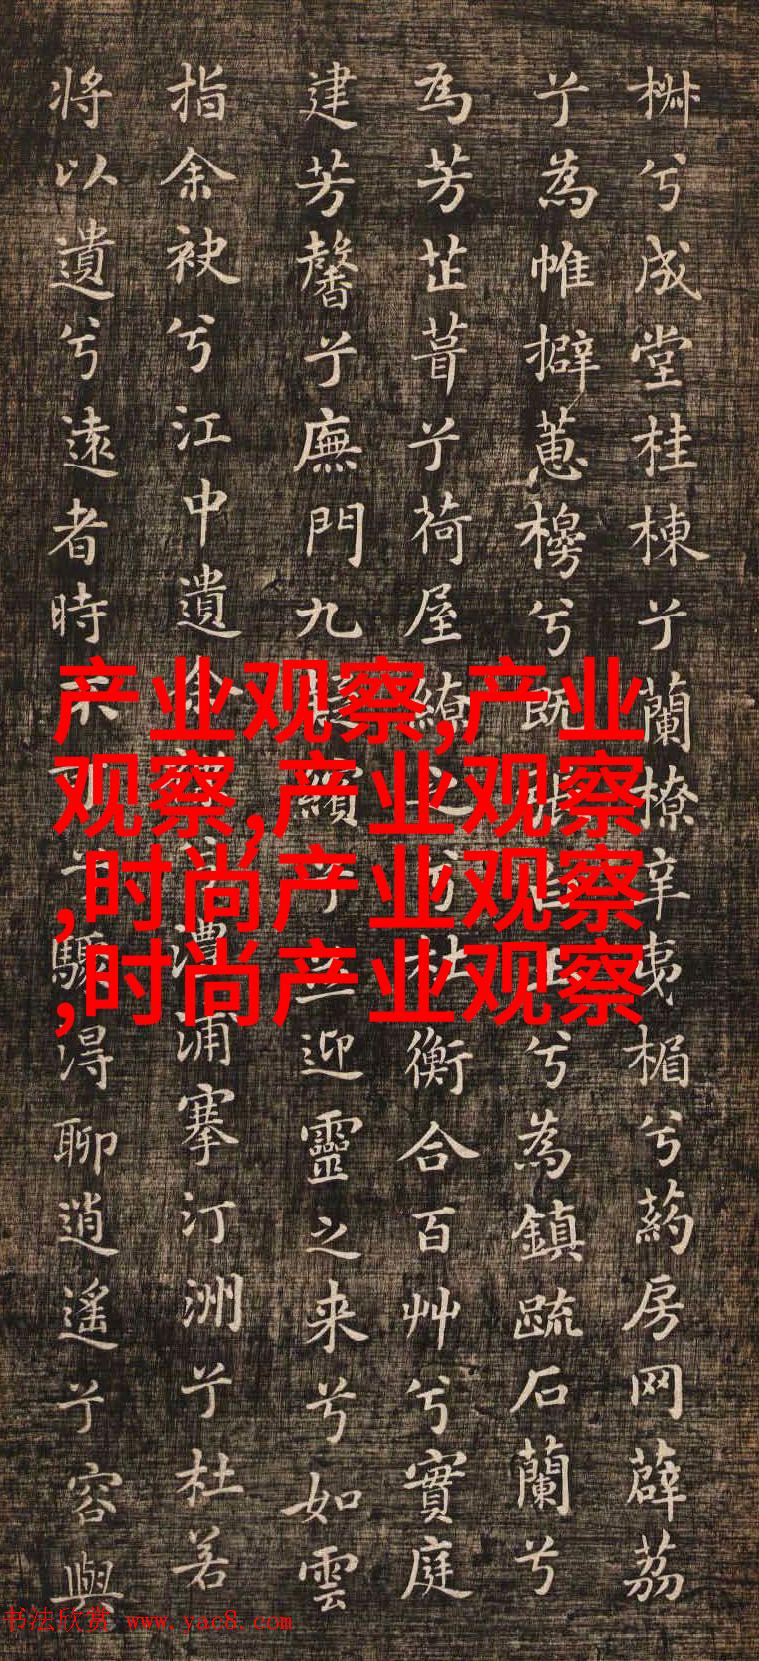 椒兮成堂桂棟兮蘭橑辛夷楣兮葯房网薜荔
兮為帷擗蕙櫋兮既張白玉兮為鎮疏石蘭兮
為芳芷葺兮荷屋繚之兮杜衡合百艸兮實庭
建芳馨兮廡門九疑繽兮並迎靈之来兮如雲
指余袂兮江中遺余褋兮澧浦搴汀洲兮杜若
将以遺兮遠者時不可兮驟得聊逍遥兮容與
产业观察,产业
观察,产业观察
,时尚产业观察
,时尚产业观察
书法欣赏 www.yac8.com